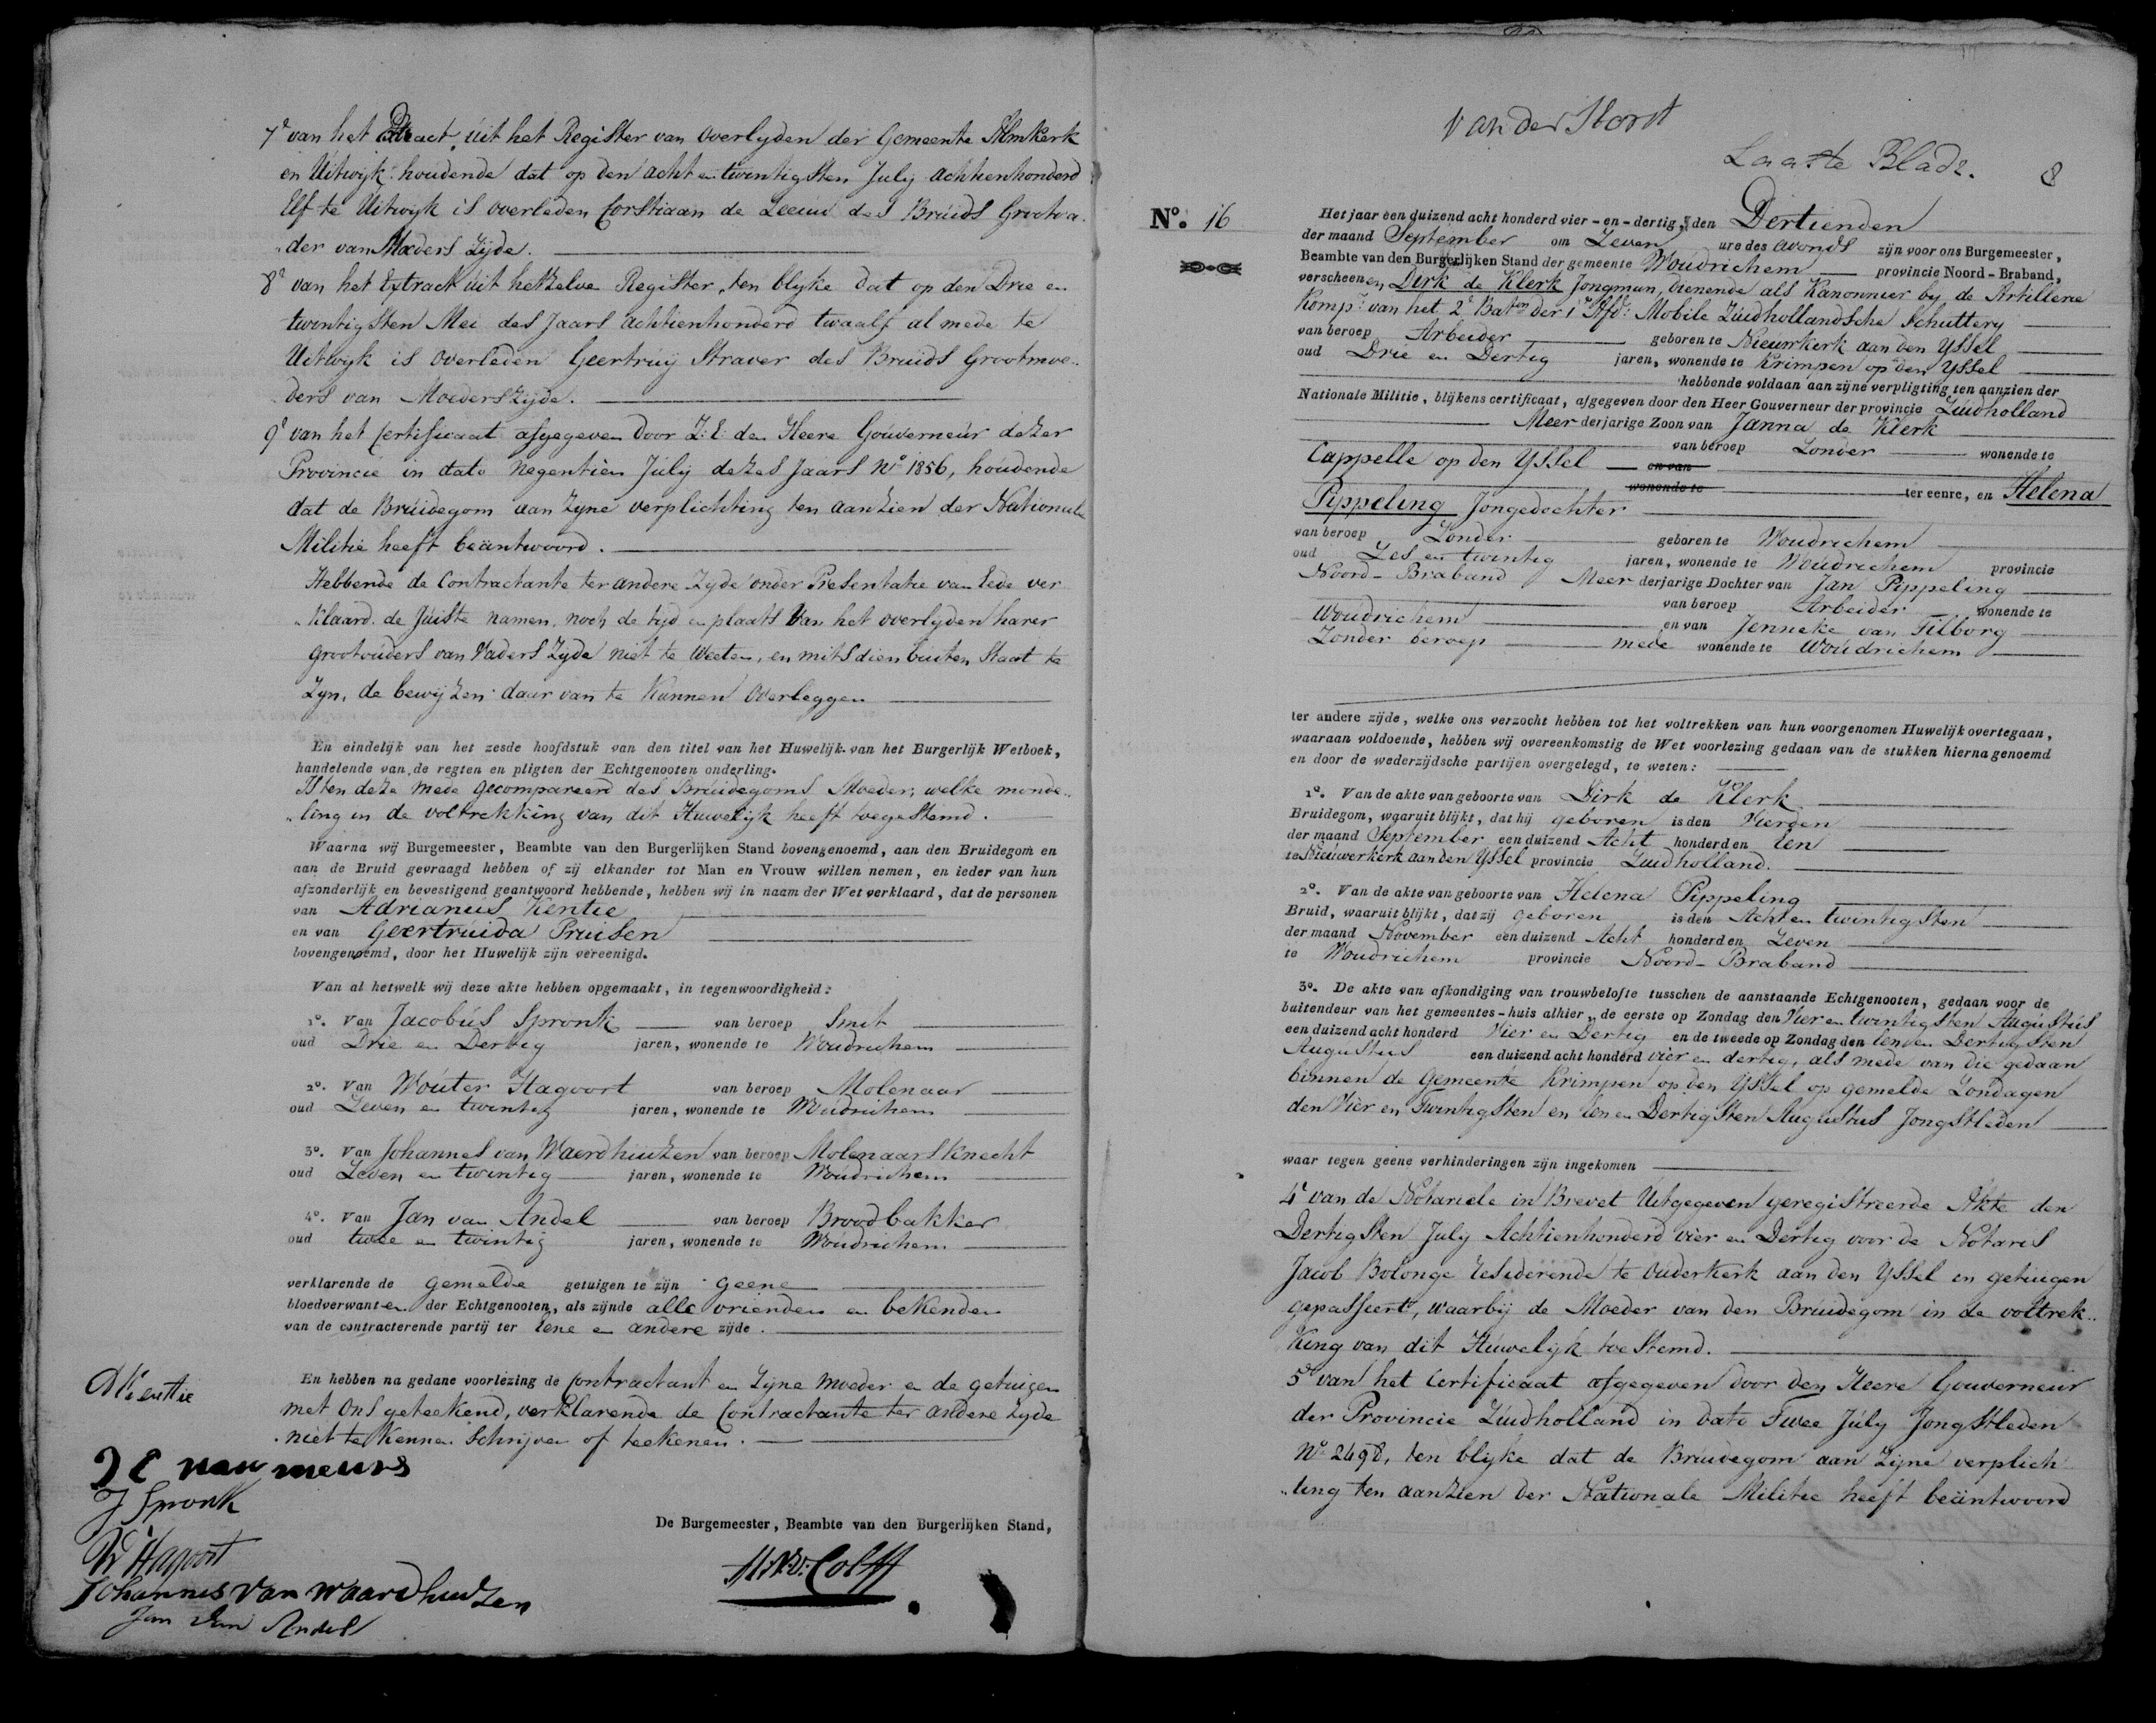 7e van het Extract uit het Register van Overlyden der Gemeente Almkerk
en Uitwyk houdende dat op den acht en twintigsten July achtienhonderd
Elf te Uitwyk is overleden Corstiaan de Leeuw des Bruids Grootva„
„der van Moeders Zijde.
8e van het Extract uit hetzelve Register, ten blyke dat op den Drie en
twintigsten Mei des Jaars achtienhonderd twaalf al mede te
Uitwyk is Overleden Geertruij Straver des Bruids Grootmoe„
„ders van Moederszijde.
9e van het Certificaat afgegeven door Z:E: den Heere Gouverneur dezer
Provincie in dato Negentien July dezes Jaars No 1856, houdende
dat de Bruidegom aan Zyne verplichting ten aanzien der Nationale
Militie heeft beäntwoord.
Hebbende de Contractante ter andere Zyde onder Presentatie van Eede ver
„klaard de Juiste namen, noch de tijd en plaats van het overlyden harer
grootouders van Vaders Zyde niet te Weeten, en mitsdien buiten Staat te
Zyn, de bewyzen daar van te Kunnen Overleggen
En eindelijk van het zesde hoofdstuk van den titel van het Huwelijk van het Burgerlijk Wetboek,
handelende van de regten en pligten der Echtgenooten onderling.
Is ten deze mede gecompareerd des Bruidegoms Moeder, welke monde„
„ling in de voltrekking van dit Huwelijk heeft toegestemd.
Waarna wij Burgemeester, Beambte van den Burgerlijken Stand bovengenoemd, aan den Bruidegom en
aan de Bruid gevraagd hebben of zij elkander tot Man en Vrouw willen nemen, en ieder van hun
afzonderlijk en bevestigend geantwoord hebbende, hebben wij in naam der Wet verklaard, dat de personen
van Adrianus Kentie
en van Geertruida Pruisen
bovengenoemd, door het Huwelijk zijn vereenigd.
Van al hetwelk wij deze akte hebben opgemaakt, in tegenwoordigheid:
1o. Van Jacobus Spronk van beroep Smit
oud Drie en Dertig jaren, wonende te Woudrichem
2o. Van Wouter Hagoort van beroep Molenaar
oud Zeven en twintig jaren, wonende te Woudrichem
3o. Van Johannes van Waardhuizen van beroep Molenaarsknecht
oud Zeven en twintig jaren, wonende te Woudrichem
4o. Van Jan van Andel van beroep Broodbakker
oud twee en twintig jaren, wonende te Woudrichem
verklarende de gemelde getuigen te zijn geene
bloedverwanten der Echtgenooten, als zijnde alle vrienden en bekenden
van de contracterende partij ter eene en andere zijde.
En hebben na gedane voorlezing de Contractant en Zijne moeder en de getuigen
met Ons geteekend, verklarende de Contractante ter andere Zyde
niet te Kennen Schrijven of teekenen.
AKienttie
van meurs
J Spronk
W Hagoort
Johannes van waardhuizen
Jan van Andel
De Burgemeester, Beambte van den Burgerlijken Stand,
van der Horst
Laaste Bladz. 8
No. 16
Het jaar een duizend acht honderd vier-en-dertig, den Dertienden
der maand September om Zeven ure des avonds zijn voor ons Burgemeester,
Beambte van den Burgerlijken Stand der gemeente Woudrichem provincie Noord-Braband,
verscheenen Dirk de Klerk Jongman, dienende als Kanonnier by de Artillerie
Komp: van het 2e Baton der 1e Afd: Mobile Zuidhollandsche Schuttery
van beroep Arbeider geboren te Nieuwkerk aan den Yssel
oud Drie en Dertig jaren, wonende te Krimpen op den Yssel
hebbende voldaan aan zijne verpligting ten aanzien der
Nationale Militie, blijkens certificaat, afgegeven door den Heer Gouverneur der provincie Zuidholland
Meerderjarige Zoon van Janna de Klerk
van beroep Zonder wonende te
Cappelle op den Yssel en van
wonende te ter eenre, en Helena
Pippeling Jongedochter
van beroep Zonder geboren te Woudrichem
oud Zes en twintig jaren, wonende te Woudrichem provincie
Noord-Braband Meerderjarige Dochter van Jan Pippeling
van beroep Arbeider wonende te
Woudrichem en van Jenneke van Tilborg
Zonder beroep mede wonende te Woudrichem
ter andere zijde, welke ons verzocht hebben tot het voltrekken van hun voorgenomen Huwelijk overtegaan,
waaraan voldoende, hebben wij overeenkomstig de Wet voorlezing gedaan van de stukken hierna genoemd
en door de wederzijdsche partijen overgelegd, te weten:
1o. Van de akte van geboorte van Dirk de Klerk
Bruidegom, waaruit blijkt, dat hij geboren is den Vierden
der maand September een duizend Acht honderd en een
te Nieuwerkerk aan den Yssel provincie Zuidholland.
2o. Van de akte van geboorte van Helena Pippeling
Bruid, waaruit blijkt, dat zij geboren is den Acht en twintigsten
der maand November een duizend Acht honderd en Zeven
te Woudrichem provincie Noord-Braband
3o. De akte van afkondiging van trouwbelofte tusschen de aanstaande Echtgenooten, gedaan voor de
buitendeur van het gemeentes-huis alhier, de eerste op Zondag den Vier en twintigsten Augustus
een duizend acht honderd Vier en Dertig en de tweede op Zondag den Een en Dertigsten
Augustus een duizend acht honderd vier en dertig, als mede van die gedaan
binnen de Gemeente Krimpen op den Yssel op gemelde Zondagen
den Vier en Twintigsten en Een en Dertigsten Augustus Jongstleden
waar tegen geene verhinderingen zijn ingekomen
4e van de Notariele in Brevet Uitgegeven geregistreerde Akte den
Dertigsten July Achtienhonderd vier en Dertig voor de Notaris
Jacob Bolonge residerende te Ouderkerk aan den Yssel en getuigen
gepasseert, waarbij de Moeder van den Bruidegom in de voltrek„
king van dit Huwelijk toestemd.
5e van het Certificaat afgegeven door den Heere Gouverneur
der Provincie Zuidholland in dato Twee July Jongstleden
No 2698, ten blyke dat de Bruidegom aan Zijne verplich
„ting ten aanzien der Nationale Militie heeft beäntwoord